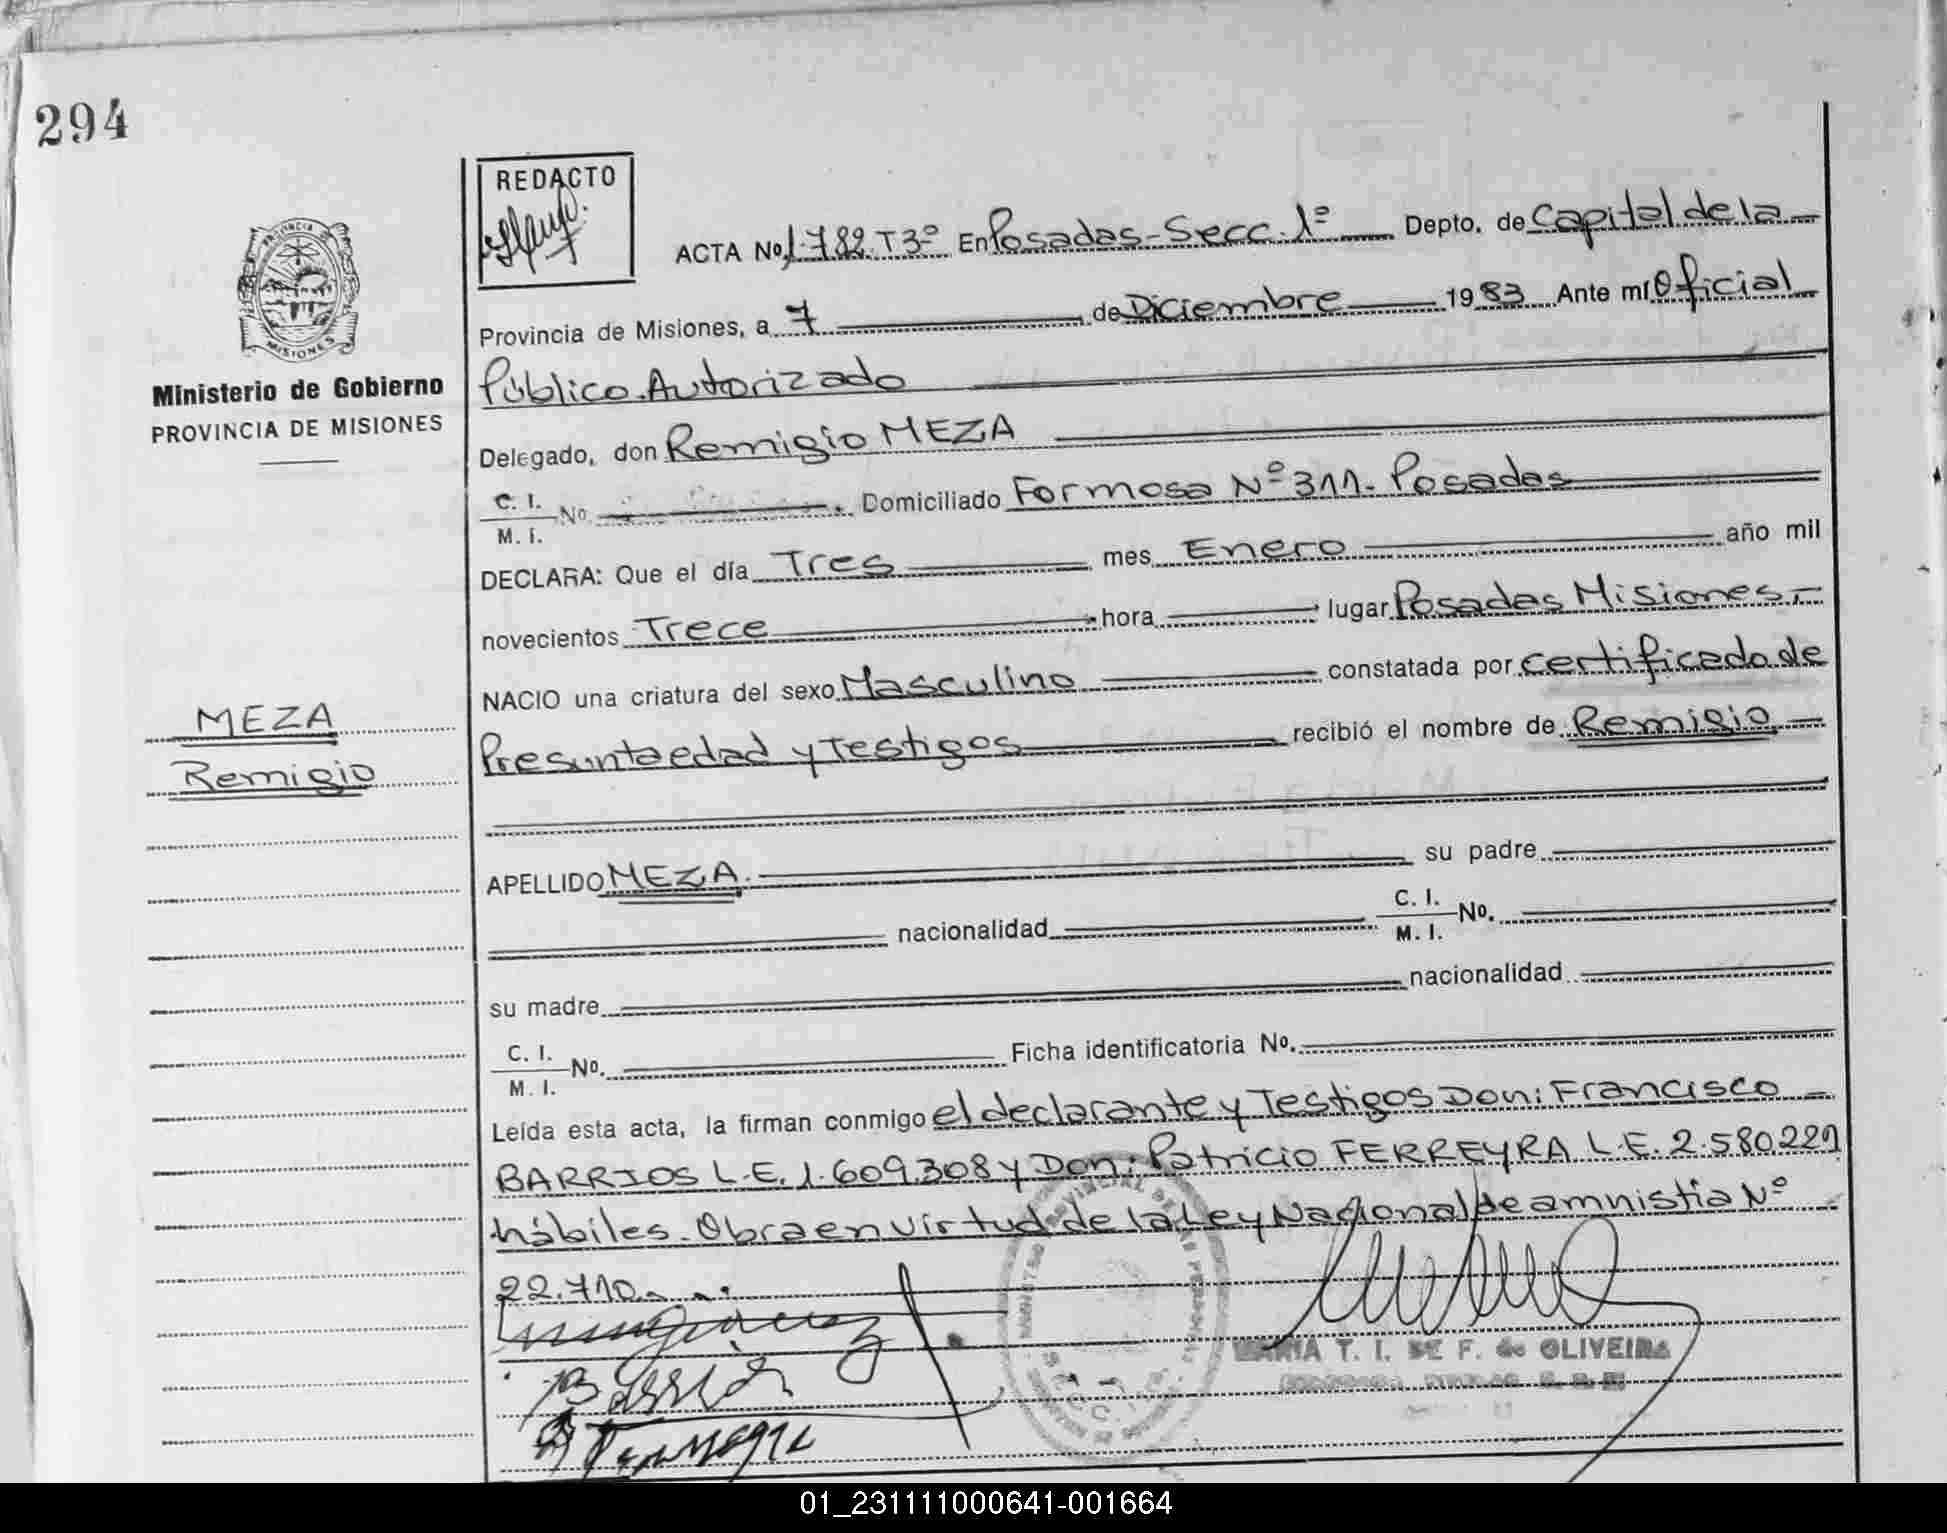 294
REDACTO
ACTA No 1.782.T3º En Posadas-Secc.1º Depto. de Capital de la
Provincia de Misiones, a 7 de Diciembre 1983 Ante mí Oficial
Público Autorizado
Delegado, don Remigio MEZA
C. I.
M. I. No. Domiciliado Formosa Nº 311. Posadas
DECLARA: Que el día Tres mes Enero año mil
novecientos Trece hora lugar Posadas Misiones.
NACIO una criatura del sexo Masculino constatada por certificado de
Presunta edad y Testigos recibió el nombre de Remigio
APELLIDO MEZA. su padre
nacionalidad C. I.
M. I. No.
su madre nacionalidad
C. I.
M. I. No. Ficha identificatoria No.
Leída esta acta, la firman conmigo el declarante y Testigos Don: Francisco
BARRIOS L.E. 1.609.308 y Don: Patricio FERREYRA L.E. 2.580.221
hábiles. Obra en virtud de la Ley Nacional de amnistia Nº
22.710.
MARIA T. I. DE F. de OLIVEIRA
PROVINCIA DE
MISIONES
Ministerio de Gobierno
PROVINCIA DE MISIONES
MEZA
Remigio
01_231111000641-001664